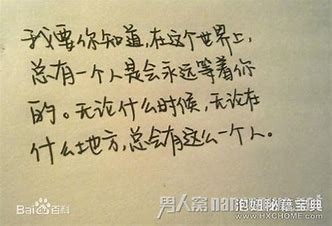 我要你知道,在这个世界上,
总有一个人是会永远等着你
的。无论什么时候,无论在
什么地方,总会有这么一个人。
Bai百科
男人窝
泡妞秘籍宝典
WWW.HXCHOME.COM